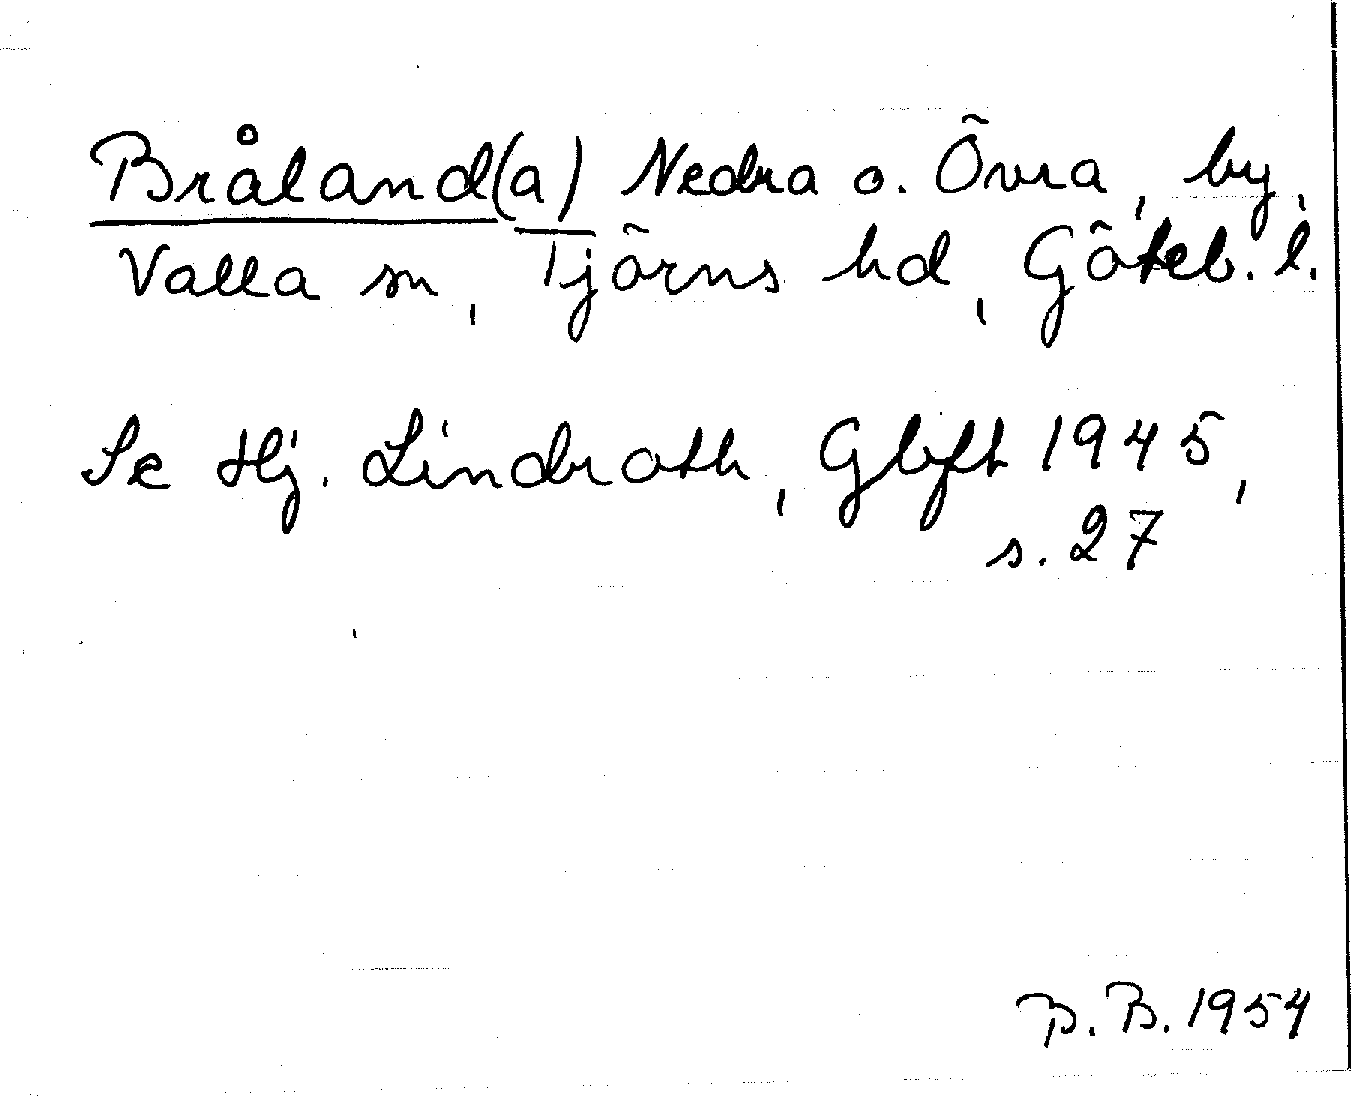 Bråland(a) Nedra o. Övra, by,
Valla sn, Tjörns hd, Göteb. l.
Se Hj. Lindroth, Gbfft 1945,
s. 27
B. B. 1954